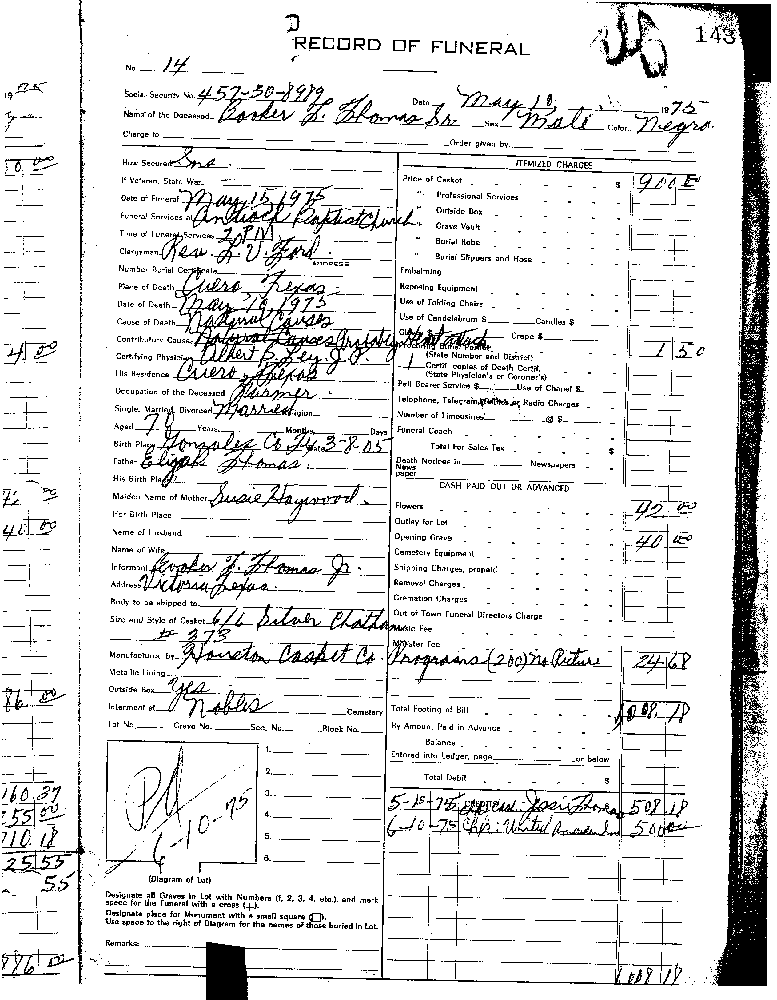 RECORD OF FUNERAL
143
No. 14
Social Security No. 457-30-8989 Date May 10, 1975
Name of the Deceased Booker T. Thomas Sr. Sex Male Color Negro
Charge to Order given by
How Secured Ins
If Veteran, State War
Date of Funeral May 15, 1975
Funeral Services at Antioch Baptist Church
Time of Funeral Services 2 PM
Clergyman Rev. L. V. Ford
ADDRESS
Number Burial Certificate
Place of Death Cuero, Texas
Date of Death May 10, 1975
Cause of Death Natural Causes
Contributory Cause Natural Causes Probably Heart Attack
Certifying Physician Albert Ley, J.P.
His Residence Cuero, Texas
Occupation of the Deceased Farmer
Single, Married, Divorced Married Religion
Aged 70 Years Months Days
Birth Place Gonzales Co Tx Date 3-8-05
Father Elijah Thomas
His Birth Place
Maiden Name of Mother Susie Haywood
Her Birth Place
Name of Husband
Name of Wife
Informant Booker T. Thomas Jr.
Address Victoria, Texas
Body to be shipped to
Size and Style of Casket 6/6 Silver Chatham
# 373
Manufactured by Houston Casket Co.
Metallic Lining
Outside Box Yes
Interment at Nobles Cemetery
Lot No. Grave No. Sec. No. Block No.
1.
2.
3.
4.
5.
6.
Pd
6-10-75
(Diagram of Lot)
Designate all Graves in Lot with Numbers (1, 2, 3, 4, etc.) and mark
space for the Funeral with a cross (+).
Designate place for Monument with a small square
Use space to the right of Diagram for the names of those buried in Lot.
Remarks:
ITEMIZED CHARGES
Price of Casket $ 900 00
" Professional Services
" Outside Box
" Grave Vault
" Burial Robe
" Burial Slippers and Hose
Embalming
Reposing Equipment
Use of Folding Chairs
Use of Candelabrum $ Candles $
Crape $
1 50
(State Number and District)
1 Certif. copies of Death Certif.
(State Physician's or Coroner's)
Pall Bearer Service $ Use of Chapel $
Telephone, Telegram, or Radio Charges
Number of Limousines @ $
Funeral Coach
Total for Sales Tax $
Death Notices in Newspapers
News
paper
CASH PAID OUT OR ADVANCED
Flowers 42 00
Outlay for Lot
Opening Grave 40 00
Cemetery Equipment
Shipping Charges, prepaid
Removal Charges
Cremation Charges
Out of Town Funeral Directors Charge
Music Fee
Minister Fee
Programs (200) No Picture 24 68
Total Footing of Bill 1008.18
By Amount Paid in Advance
Balance
Entered into Ledger, page or below
Total Debit $
5-15-75 Jessie Thomas 508 18
6-10-75 United 500 00
1008 18
19 75
0 00
4 00
72 00
40 00
86 00
160 37
55 00
710 18
25 55
55